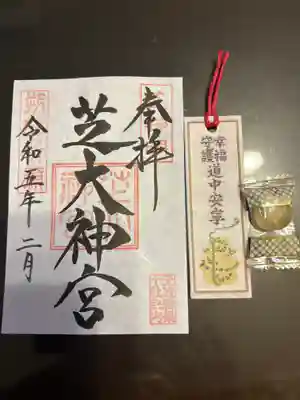 奉拝
芝大神宮
令和五年二月
幸福
守護
道中安全